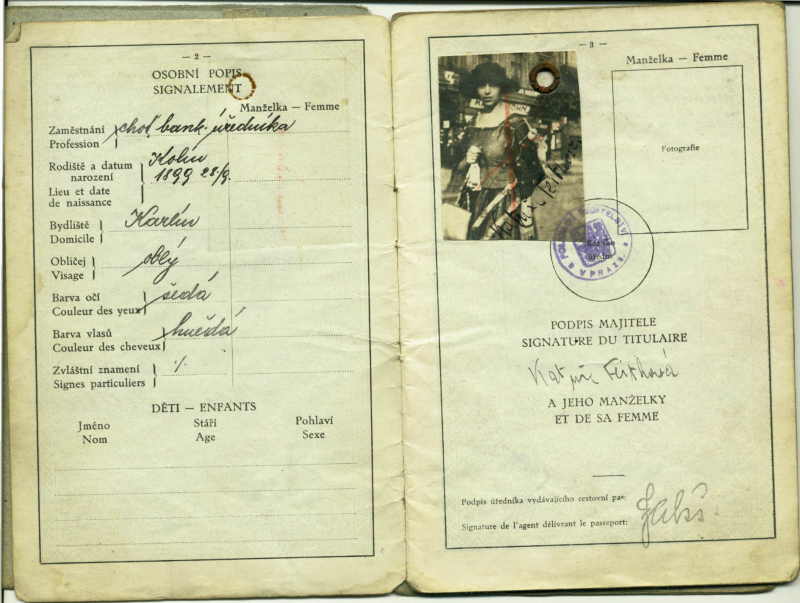 — 2 —
OSOBNÍ POPIS
SIGNALEMENT
Manželka — Femme
Zaměstnání
Profession
choť bank. úředníka
Rodiště a datum
narození
Lieu et date
de naissance
Kolín
1899 28/9.
Bydliště
Domicile
Karlín
Obličej
Visage
oblý
Barva očí
Couleur des yeux
šedá
Barva vlasů
Couleur des cheveux
hnědá
Zvláštní znamení
Signes particuliers
%
DĚTI — ENFANTS
Jméno Stáří Pohlaví
Nom Age Sexe
— 3 —
Manželka — Femme
Fotografie
PODPIS MAJITELE
SIGNATURE DU TITULAIRE
A JEHO MANŽELKY
ET DE SA FEMME
Podpis úředníka vydávajícího cestovní pas:
Signature de l'agent délivrant le passeport: